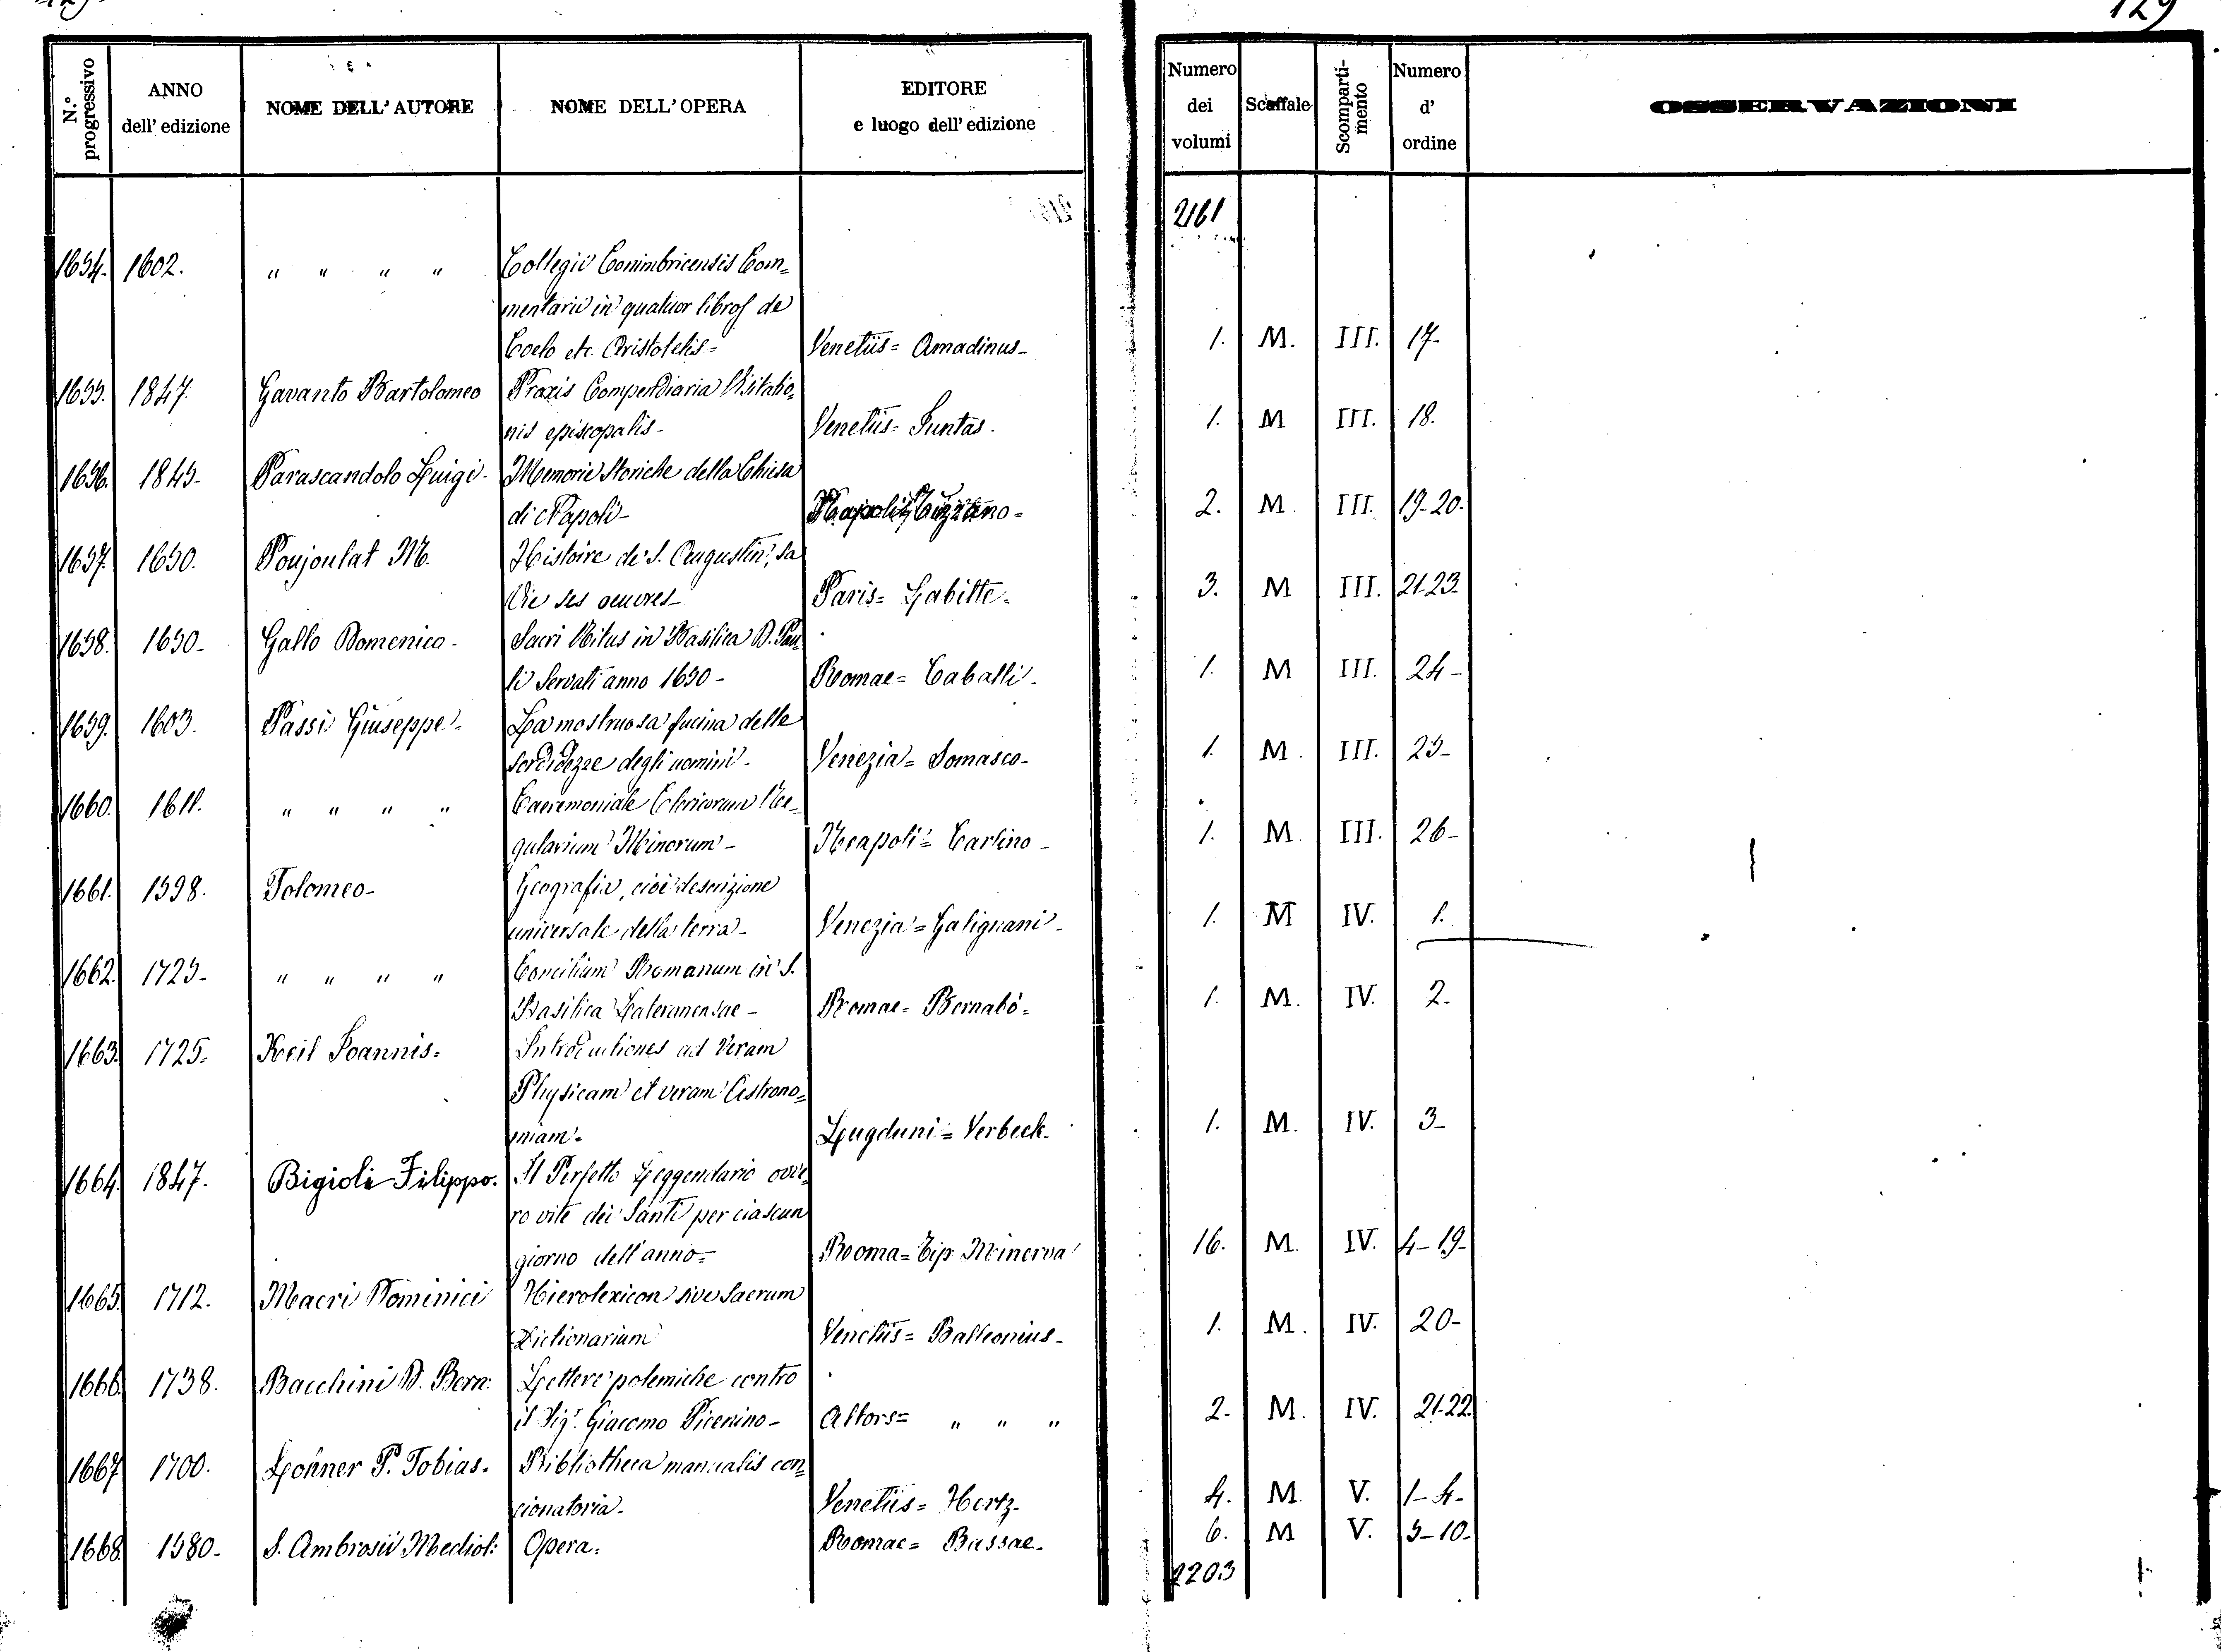 129
N.º progressivo
ANNO dell' edizione
NOME DELL' AUTORE
NOME DELL' OPERA
EDITORE e luogo dell' edizione
Numero dei volumi
Scaffale
Scompartimento
Numero d' ordine
OSSERVAZIONI
2161
1654. 1602. " " " " Collegii Conimbricensis Com=
mentarii in quatuor libros de
Coelo etc. Aristotelis= Venetiis= Amadinus- 1. M. III. 17-
1655. 1847. Gavanto Bartolomeo Praxis Compendiaria Visitatio=
nis episcopalis- Venetiis= Juntas. 1. M III. 18.
1656. 1845- Parascandolo Luigi- Memorie Storiche della Chiesa
di Napoli- Napoli= Tizzano= 2. M. III. 19-20.
1657. 1650. Poujoulat M. Histoire de S. Augustin, sa
Vie ses oeuvres- Paris= Labitte. 3. M III. 21-23-
1658. 1650- Gallo Domenico- Sacri Ritus in Basilica D. Pau
li Servati anno 1650- Romae= Caballi- 1. M III. 24-
1659. 1603. Passi Giuseppe- La mostruosa fucina delle
sordidezze degli uomini- Venezia= Somasco- 1. M. III. 25-
1660. 1611. " " " " Caeremoniale Clericorum Re=
gularium Minorum- Neapoli= Carlino- 1. M. III. 26-
1661. 1598. Tolomeo- Geografia, cioè descrizione
universale della terra- Venezia= Galignani- 1. M IV. 1.
1662. 1725- " " " " Concilium Romanum in S.
Basilica Lateranensae- Romae= Bernabò= 1. M. IV. 2.
1663. 1725= Keil Joannis= Introductiones ad Veram
Physicam et veram Astrono=
miam= Lugduni= Verbeek- 1. M. IV. 3-
1664. 1847. Bigioli Filippo. Il Perfetto Leggendario ovve=
ro vite dei Santi per ciascun
giorno dell' anno= Rooma= Tip Minerva 16. M. IV. 4-19-
1665. 1712. Macri Dominici Hierolexicon sive Sacrum
Dictionarium Venetiis= Balleonius- 1. M. IV. 20-
1666. 1738. Bacchini D. Bern: Lettere polemiche contro
il Sigr. Giacomo Picenino- Altors= " " " 2- M. IV. 21-22
1667 1700. Lohner P. Tobias. Bibliotheca manualis con=
cionatoria- Venetiis= Hertz- 4. M. V. 1-4-
1668 1580- S. Ambrosii Mediol: Opera: Romae= Bassae- 6. M V. 5-10-
2203